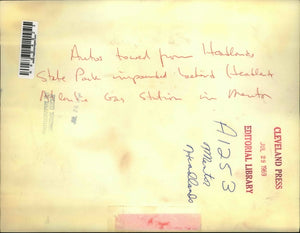 Autos towed from Headlands
State Park impounded behind
Atlantic Gas Station in Mentor
A1253
Mentor
Headlands
CLEVELAND PRESS
JUL 29 1969
EDITORIAL LIBRARY